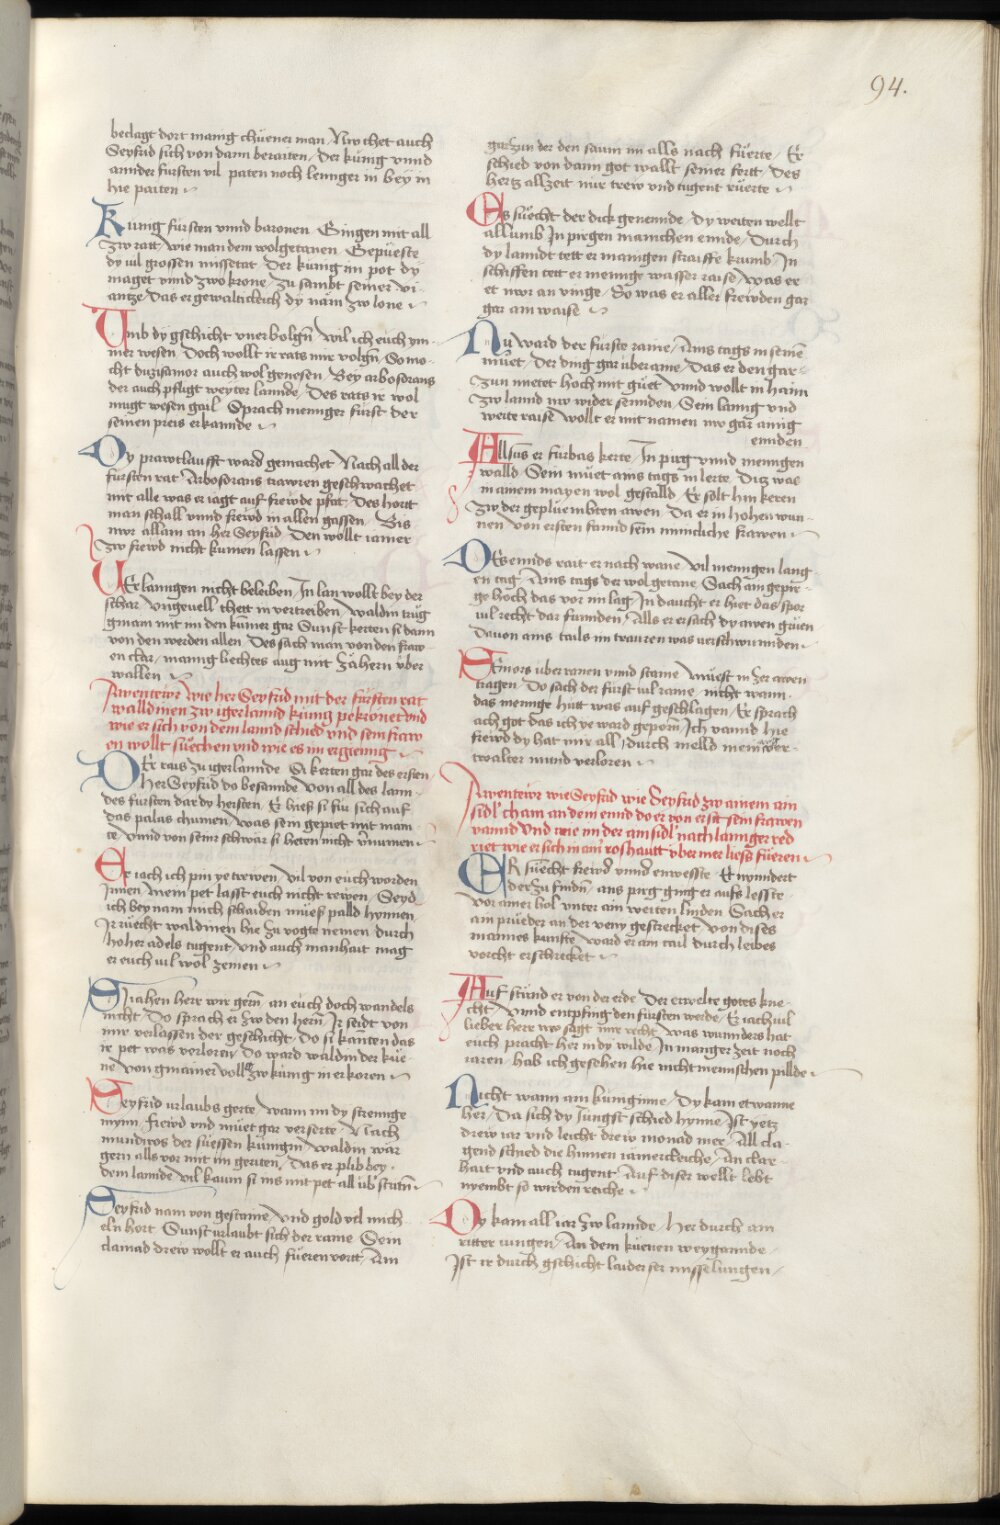 94.
beclagt dort manig chüener man / Nw chet auch
Seyfrid sich von dann beraiten / Der künig vnnd
annder fursten vil paten noch lennger in bey in
hie paiten
Kunig fürsten vnnd baronen Giengen mit all
zw ratt / wie man dem wolgetanen Gepüeste
dy vil grossen missetat Der künig im pot dy
maget vnnd zwo krone / zu sambt seiner vi-
antze / Das er gewalticleich dy näm zw lone
Umb dy gschicht vnerbolgn̄ wil ich euch ym-
mer wesen / Doch wollt ir rats mir volgn̄ / So mo-
cht duzisamor auch wol genesen / Bey arbosorans
der auch pfligt weyter lannde / Des rats ir wol
mugt wesen gail Sprach menniger fürst der
seinen preis erkannde
Dy prawtlaufft ward gemachet Nach all der
fürsten rat / Arbosorans trawren geschwachet
mit alle was er iagt auf frewde pfat / Des hortt
man schall vnnd frewd in allen gassen / Bis
nwr allain an her Seyfrid / Den wollt iamer
zw frewd nicht kumen lassen
ER lanngen nicht beleiben / In lan wollt bey der
schar / vngevell thett in vertreiben / waldin trüg
gmain mit im den kumer gar Sunst kerten si dann
von den werden allen / Des sach man von den fraw-
en clar / mannig liechtes aug mit zähern vber
wallen
Awentewr wie her Seyfrid mit der fürsten rat
walldinen zw igerlannd künig pekrönet vnd
wie er sich von dem lannd schied vnd sein fraw
en wollt süechen vnd wie es im ergienng
DEr rais zu igerlannde Si kerten gar des ersten
Her Seyfrid do besannde von all des lann-
des fursten dar dy hersten / Er hieß si für sich auf
das palas chumen / was sein gepiet mit man
te vnnd von seinr schwär si heten nicht vnumen
Er iach ich pin ye trewen / vil von euch worden
Innen / Mein pet lasst euch nicht rewen / Seyd
ich bey nam mich schaiden mües palld hynnen
Ir ruecht waldinen hie zu vogte nemen / durch
hoher adels tugent / vnd auch manhait mag
er euch vil wol zemen
Si iahen here wir gern̄ / an euch doch wandels
nicht / Do sprach er zw den hern̄ / Ir seidt von
mir verlassen der geschicht / Do si kanten das
ir pet was verloren / Do ward waldin der küe-
ne von gmainer vollg zw künig in erkoren
Seyfrid vrlaubs gerte / wann im dy strennge
mynn / frewd vnd müet gar verserte / Nach
mundiros der süessen künigin / waldin wär
gern alls vor mit im geriten / Das er plib bey
dem lannde / vil kaum si ins mit pet all vb̄ stritn̄
Seyfrid nam von gestaine / vnd gold vil mich
eln hort Sunst vrlaubt sich der raine Sein
clainad drew wollt er auch füeren vortt / Ain
garzun der den saum im alls nach füerte / Er
schied von dann got wallt seiner fertt / Des
hertz allzeit nur trew vnd tugent rüerte
Es süecht der dick genennde / dy weiten wellt
all vmb In pirgen manichen ennde / Durch
dy lanndt tett er manigen strauffe krumb / In
schiffen tett er mennge wasser raise / was er
et nwr an vinge / So was er aller frewden gar
gar ain waise
Nu ward der fürste raine / Ains tags in seinē
müet / Der ding gar überaine / Das er den gar-
zun mietet hoch mit güet vnnd wollt in haim
zw lannd nw wider sennden / Sein lanng vnd
weite raise / wollt er mit namen nw gar ainig
ennden
Allsus er fürbas kerte / In pirg vnnd mennigen
walld Sein müet ains tags in lerte / Ditz was
in ainem mayen wol gestalld / Er solt hin keren
zw der geplüembten awen / Da er in hohen wun-
nen / von ersten fannd sein minicliche frawen
DEs ennds rait er nach wane / vil mennigen lang
en tag / Ains tags der wol getane Sach ain gepir-
ge hoch das vor im lag / In daucht er hiet das spor
vil recht dar funnden / Alls er ersach dy awen grüen
Davon ains tails im trauren was verschwunnden
Sein ors über ranen vnnd staine / Müest in zer awen
tragen / Do sach der fürst vil raine / nicht wann
das mennge hütt was auf geschlagen / Er sprach
ach got das ich ye ward geporn̄ / Ich vannd hie
frewd dy hat mir all / durch melld mein ver-
twalter mund verloren
Awentewr wie Seyfrid wie Seyfrid zw ainem ain
sidl cham an dem ennd do er von erst sein frawen
vannd vnd wie im der ainsidl nach lannger red
riet wie er sich in ain̄ roshautt vber mer liess füeren
ER süecht frewd vnnd enwesste / Er nynndert
der zu findn̄ / ans pirg ging er aufs lesste
vor ainer hol vnter ain weiten linden Sach er
ain prüeder an der veny gestrecket / von dises
mannes künfte / ward er ain tail durch leibes
vorcht erschricket
Auf stünd er von der erde Der erwelte gotes kne-
cht / vnnd entpfing den fürsten werde / Er iach vil
lieber here nw sagt mir recht / was wunnders hat
euch pracht her in dy wilde / In manger zeit noch
iaren / hab ich gesehen hie nicht mennschen pillde
Nicht wann ain küniginne / Dy kam etwanne
her / Da sich dy Jungst schied hynne / Ist yetz
drew iar vnd leicht drew monad mer / All cla-
gend schied die hinnen iamercleiche / An clar-
hait vnd auch tugent / Auf diser wellt lebt
nyembt so wirden reiche
Dy kam all iar zw lannde / Her durch ain
ritter iungen / An dem küenen weygannde
Ist ir durch gschicht laider ser misselungen